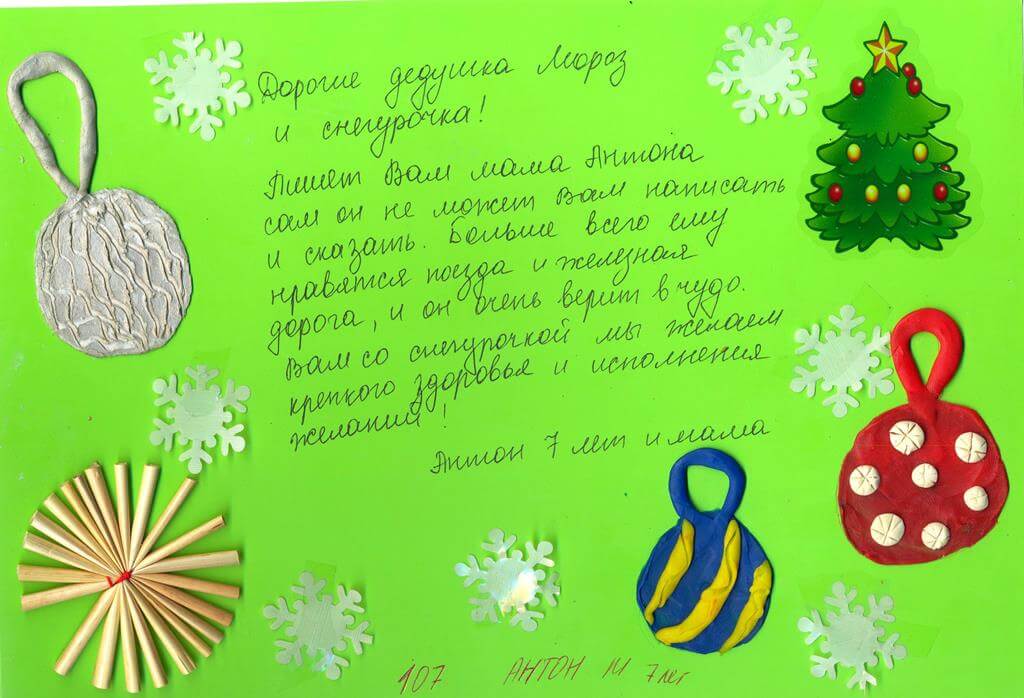 Дорогие дедушка Мороз
и снегурочка!
Пишет Вам мама Антона
сам он не может Вам написать
и сказать. Больше всего ему
нравятся поезда и железная
дорога, и он очень верит в чудо.
Вам со снегурочкой мы желаем
крепкого здоровья и исполнения
желаний!
Антон 7 лет и мама
107 АНТОН М 7 лет